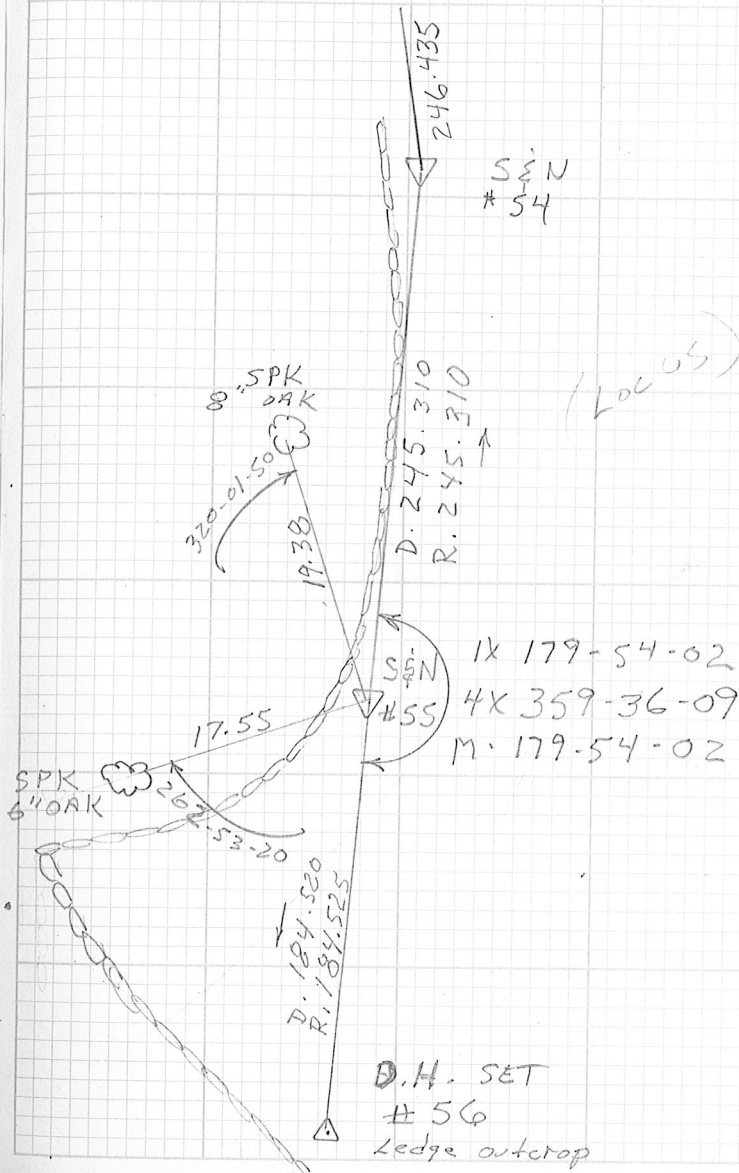 246.435
S & N
# 54
(Locus)
8" SPK
OAK
320-01-50
19.38
D. 245.310
R. 245.310
S & N
#55
1X 179-54-02
4X 359-36-09
M. 179-54-02
17.55
SPK
6" OAK
262-53-20
D. 184.520
R. 184.525
D.H. SET
# 56
Ledge outcrop